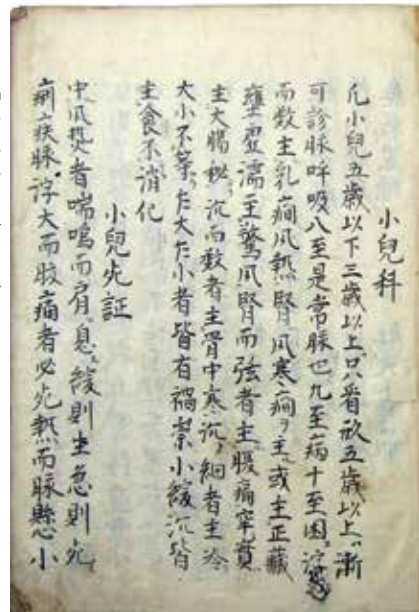 小兒科
凡小兒五歲以下三歲以上只看
五歲以上漸
可診脉呼吸八至是常脉也九至病十至困
而数主乳癎風熱腎風寒癎主或主正藏
壅虛濡主驚風腎而弦者主腹痛牢實
主大腸秘沉而数者主骨中寒沉細者主冷
大小不等大小者皆有禍小緩沉皆
主食不消化
小兒死証
中風熱者喘鳴而肩息緩則生急則死
病疾脉浮大而腹痛者必死熱而脉懸小